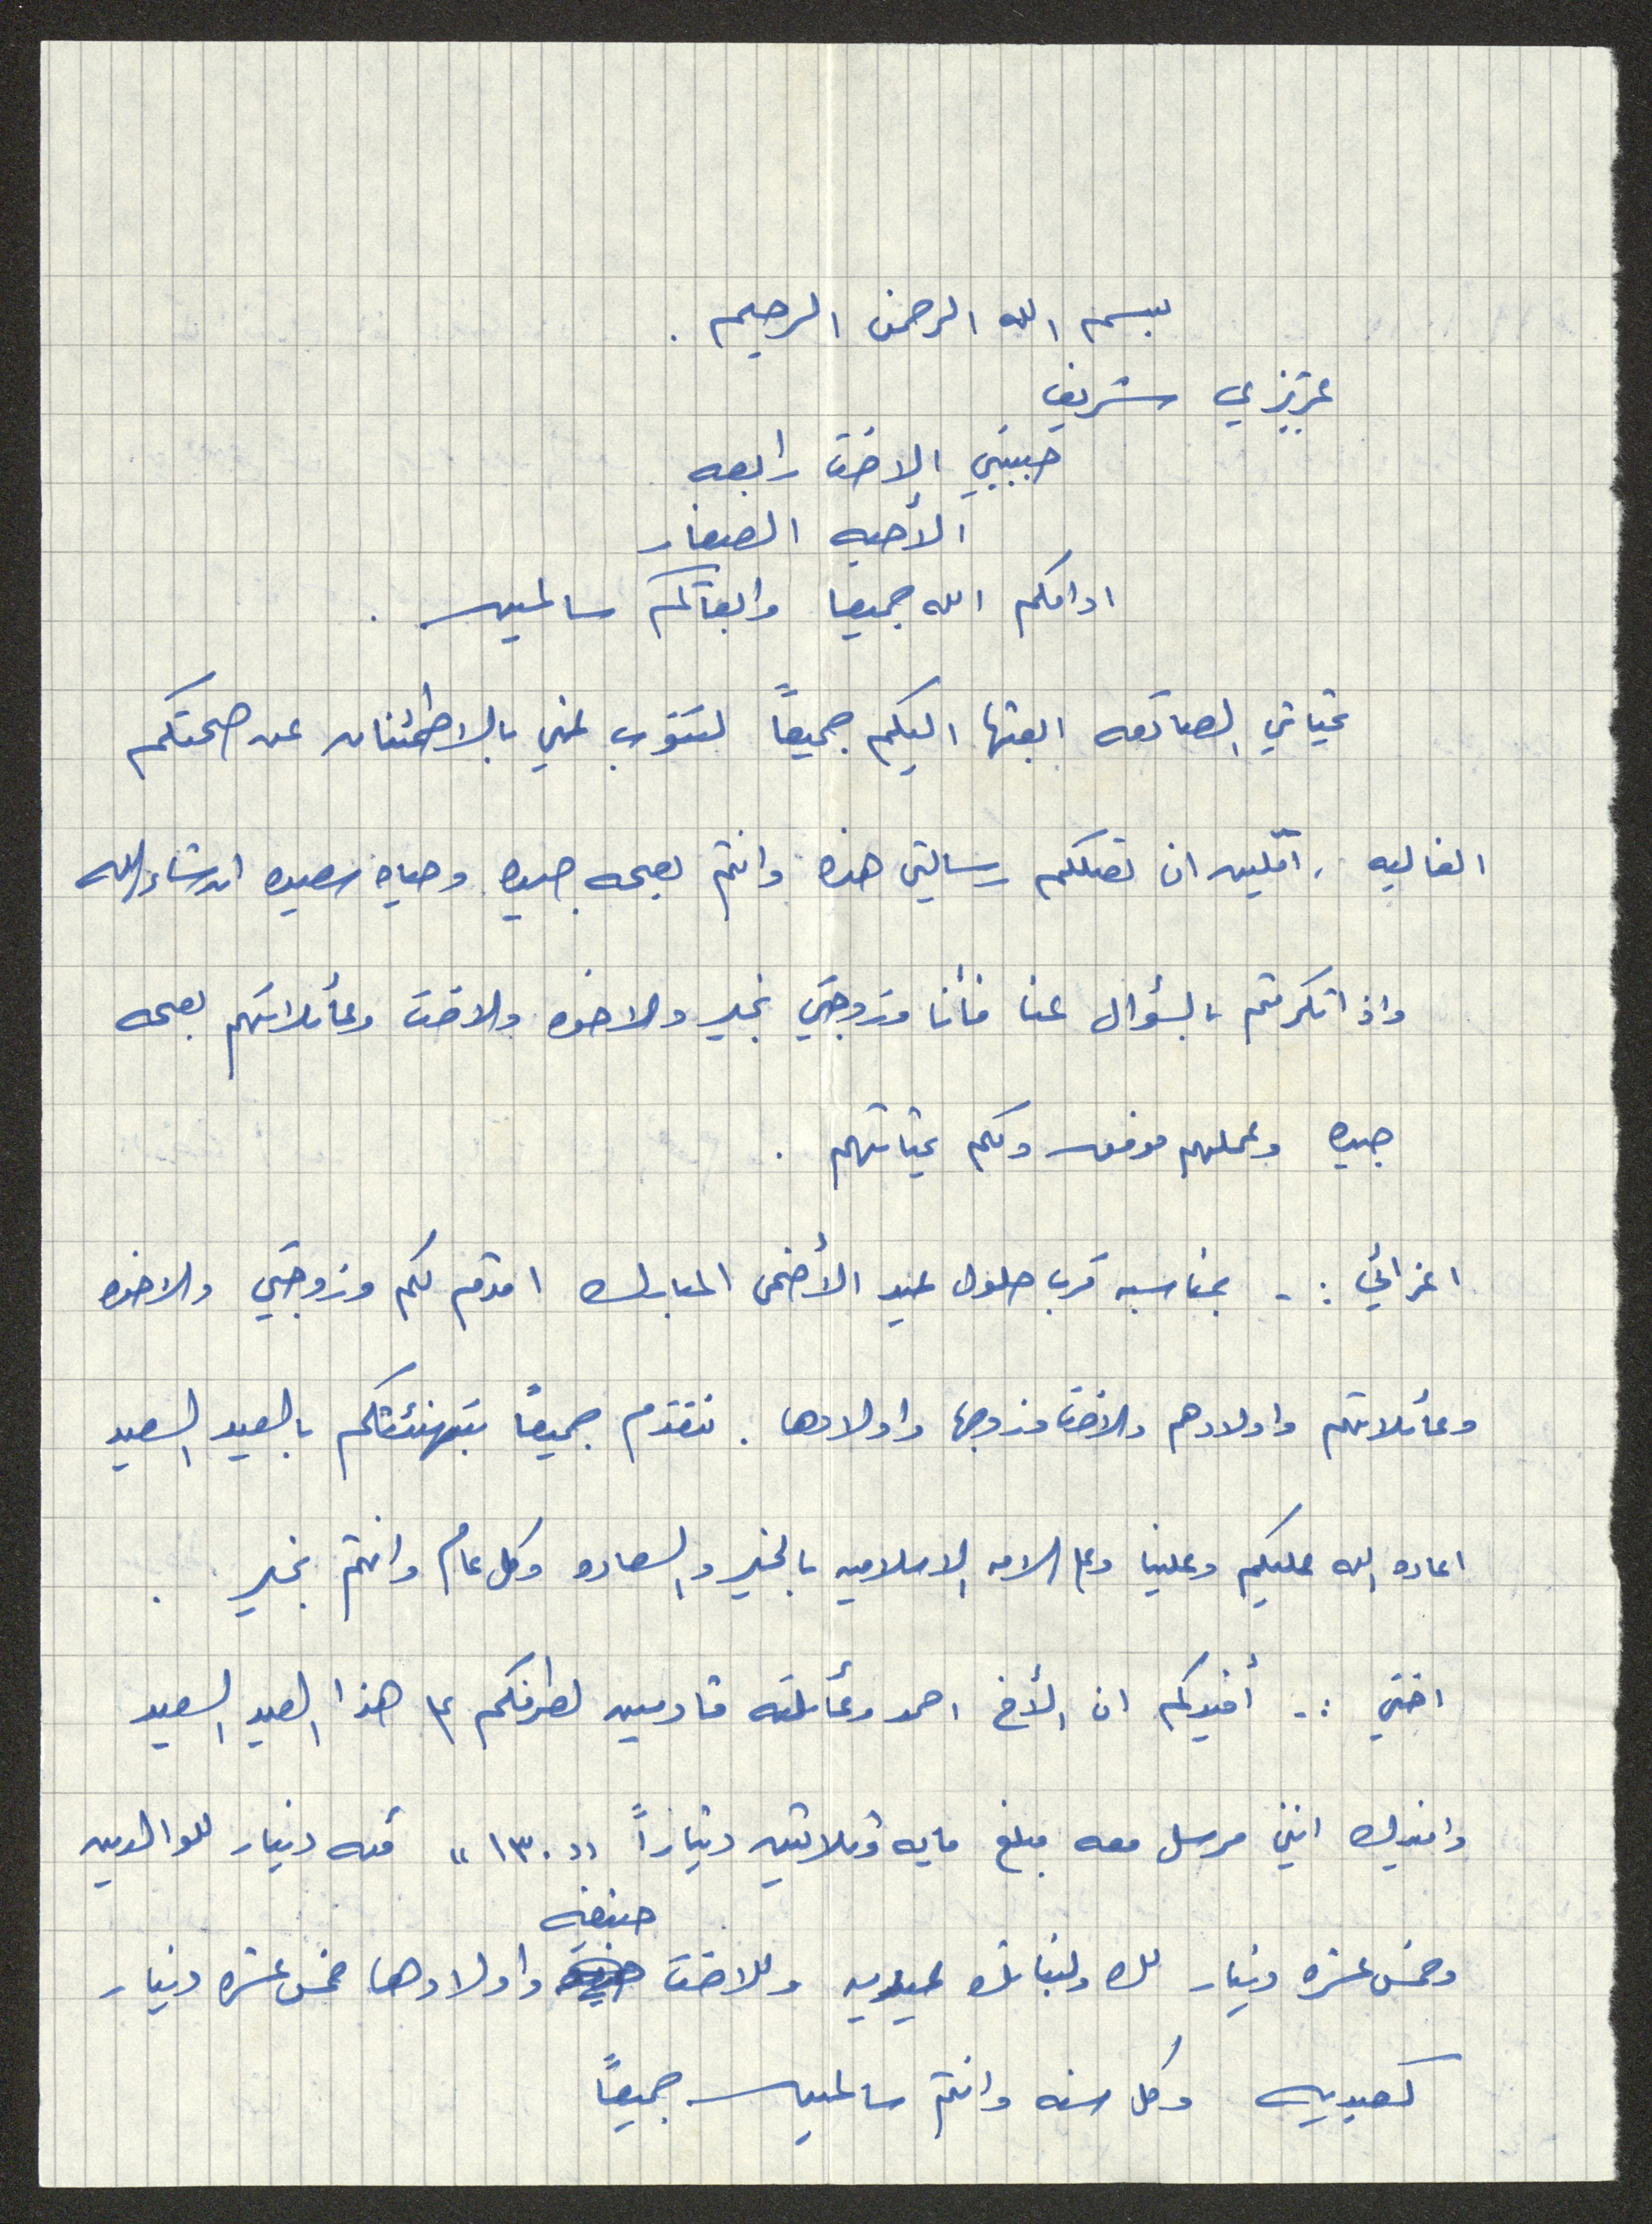 بسم الله الرحمن الرحيم .
عزيزي شريف
حبيبتي الاخت رابعه
الأحبه الصغار
ادامكم الله جميعا وابقاكم سالمين .
تحياتي الصادقه ابعثها اليكم جميعاً لتنوب عني بالاطمئنان عن صحتكم
الغاليه ، آملين ان تصلكم رسالتي هذه وانتم بصحه جيده وحياه سعيده ان شاء الله
واذا تكرمتم بالسؤال عنا فأنا وزوجتي بخير والاخوه والاخت وعائلاتهم بصحه
جيده وعملهم موفق ولكم تحياتهم .
اعزائي :- بمناسبه قرب حلول عيد الأضحى المبارك اقدم لكم وزوجتي والاخوه
وعائلاتهم واولادهم والاخت وزوجها واولادها . نتقدم جميعاً بتهنئتكم بالعيد السعيد
اعاده الله عليكم وعلينا وعلى الامه الاسلاميه بالخير والسعاده وكل عام وانتم بخير .
اختي :- أفيدكم ان الأخ احمد وعائلته قادمين لطرفكم على هذا العيد السعيد
وافيدك انني مرسل معه مبلغ مايه وثلاثين ديناراً " ١٣٠ " مئه دينار للوالدين
وخمس عشره دينار لك ولبناتك عيديه وللاخت حنيفه واولادها خمس عشره دينار
كعيديه وكل سنه وانتم سالمين جميعاً